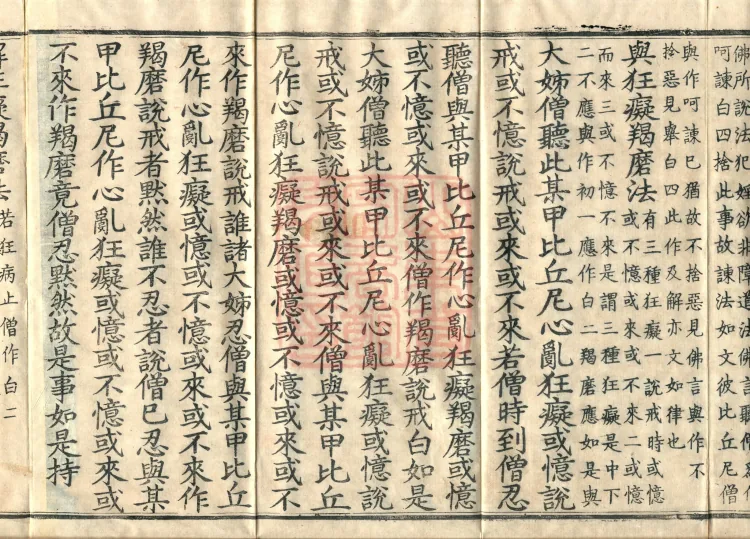 佛所說法犯婬欲非障道法佛言聽僧為作
呵諫白四捨此事故諫法如文彼比丘尼僧
與作呵諫已猶故不捨惡見佛言與作不
捨惡見舉白四此作及解亦文如律也
與狂癡羯磨法有三種狂癡一說戒時或憶
或不憶或來或不來二或憶
而來三或不憶不來是謂三種狂癡是中下
二不應與作初一應作白二羯磨應如是與
大姊僧聽此某甲比丘尼心亂狂癡或憶說
戒或不憶說戒或來或不來若僧時到僧忍
聽僧與某甲比丘尼作心亂狂癡羯磨或憶
或不憶或來或不來僧作羯磨說戒白如是
大姊僧聽此某甲比丘尼心亂狂癡或憶說
戒或不憶說戒或來或不來僧與某甲比丘
尼作心亂狂癡羯磨或憶或不憶或來或不
來作羯磨說戒誰諸大姊忍僧與某甲比丘
尼作心亂狂癡或憶或不憶或來或不來作
羯磨說戒者默然誰不忍者說僧已忍與某
甲比丘尼作心亂狂癡或憶或不憶或來或
不來作羯磨竟僧忍默然故是事如是持
解狂癡羯磨法若狂病止僧作白二